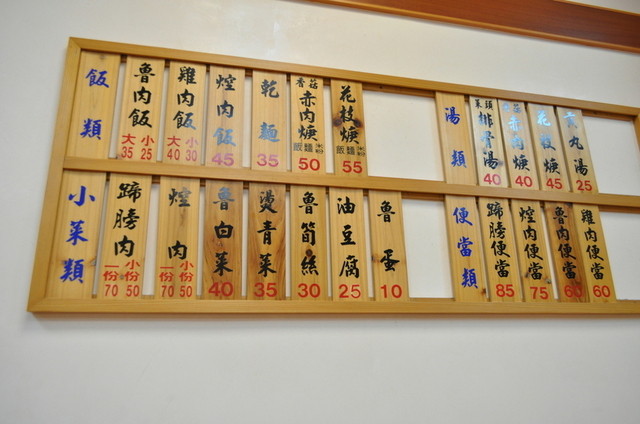 飯類
魯肉飯 大35 小25
雞肉飯 大40 小30
焢肉飯 45
乾麵 35
香菇赤肉焿 飯麵米粉 50
花枝焿 飯麵米粉 55
湯類
菜頭排骨湯 40
赤肉焿 40
花枝焿 45
貢丸湯 25
小菜類
蹄膀肉 一份70 小份50
焢肉 一份70 小份50
魯白菜 40
燙青菜 35
魯筍絲 30
油豆腐 25
魯蛋 10
便當類
蹄膀便當 85
焢肉便當 75
魯肉便當 60
雞肉便當 60